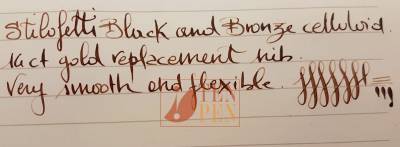 Stilofetti Black and Bronze celluloid.
14ct gold replacement nib.
Very smooth and flexible.
PEN